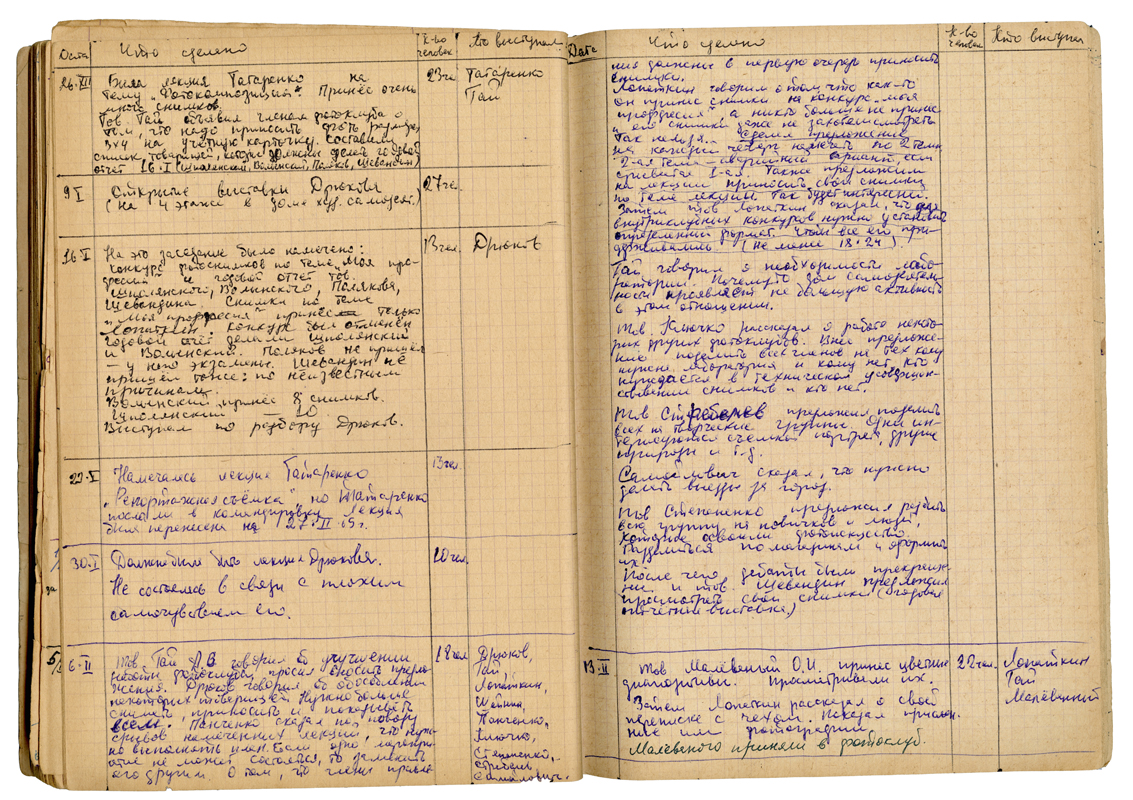 Дата Что сделано К-во человек Кто выступал
26·XII Была лекция Татаренко на 23 че Татаренко
тему „Фотокомпозиция". Принёс очень Гай
много снимков.
Тов. Гай объявил членам фотоклуба о
том, что надо приносить фото размер
3х4 на учётную карточку. Составили
список товарищей, которые должны делать годовой
отчёт 16·I (Шполянский, Волынский, Поляков, Шевандин)
9 I Открытие выставки Дрюкова 27 чел.
(на 4 этаже в доме худ. самодеят.)
16·I На это заседание было намечено: 13 чел. Дрюков
конкурс на тему „Моя про-
фессия" и годовой отчёт тов.
Шполянского, Волынского, Полякова,
Шевандина. Снимки по теме
„Моя профессия" принёс только
Лопаткин. Конкурс был отменён
годовой отчёт делали Шполянский
и Волынский. Поляков не пришёл
— у него экзамены. Шевандин не
пришёл тоже: по неизвестным
причинам.
Волынский принёс 8 снимков.
Шполянский — 10.
Выступал по разбору Дрюков.
23·I Намечалась лекция Татаренко 13 чел.
„Репортажная съёмка", но Татаренко
послали в командировку лекция
была перенесена на 27·II·65 г.
30·I Должна была быть лекция Дрюкова. 20 чел.
Не состоялась в связи с плохим
самочувствием его.
6·II Тов. Гай Л.В. говорил об улучшении 18 чел Дрюков,
работы фотоклуба, просил вносить предло- Гай
жения. Дрюков говорил об обособлении Лопаткин,
некоторых товарищей. Нужно больше
снимать, приносить и показывать Панченко,
всем. Панченко сказал по поводу Ключко,
срывов намеченных лекций, что нуж- Степаненко,
но выполнять план. Если одно мероприя-
тие не может состоятся, то заменять Самойлович.
его другим. О том, что члены правле-
Дата Что сделано К-во человек Кто выступал
ния должны в первую очередь приносить
снимки.
Лопаткин говорил о том, что как-то
он принёс снимки на конкурс „Моя
профессия", а никто больше не принёс
и его снимки даже не захотели смотреть
Так нельзя. Сделал предложение
на каждый четверг намечать по 2 темы
2-ая тема — аварийный вариант, если
срывается 1-ая. Также предложил
на лекции приносить свои снимки
по теме лекции. Так будет интересней.
Затем тов Лопаткин сказал, что для
внутриклубных конкурсов нужно установить
определённый формат, чтобы все его при-
держивались (не менее 18·24).
Гай говорил о необходимости лабо-
ратории. Почему-то дом самодеятель-
ности проявляет не большую активность
в этом отношении.
Тов. Ключко рассказал о работе некото-
рых других фотоклубов. Внёс предложе-
ние поделить всех членов на тех кому
нужна лаборатория и кому нет, кто
нуждается в техническом усовершен-
ствовании снимков и кто нет.
Тов. предложил поделить
всех на творческие группы. Одни ин-
тересуются съёмкой портрета, другие
природы и т.д.
Самойлович сказал, что нужно
делать выезды за город.
Тов Степаненко предложил разбить
всю группу на новичков и людей,
которые освоили фотоискусство.
Разделиться по и оформить
их.
После чего дебаты были прекраще-
ны и тов. Шевандин предложил
просмотреть свои снимки (годовая
отчётная выставка.)
13·II Тов Малёваный О.И. принёс цветные 22 чел. Лопаткин
диапозитивы. Просматривали их. Гай
Затем Лопаткин рассказал о своей Малёваный
переписке с чехом. Показал прислан-
ные им фотографии.
Малёваного приняли в фотоклуб.